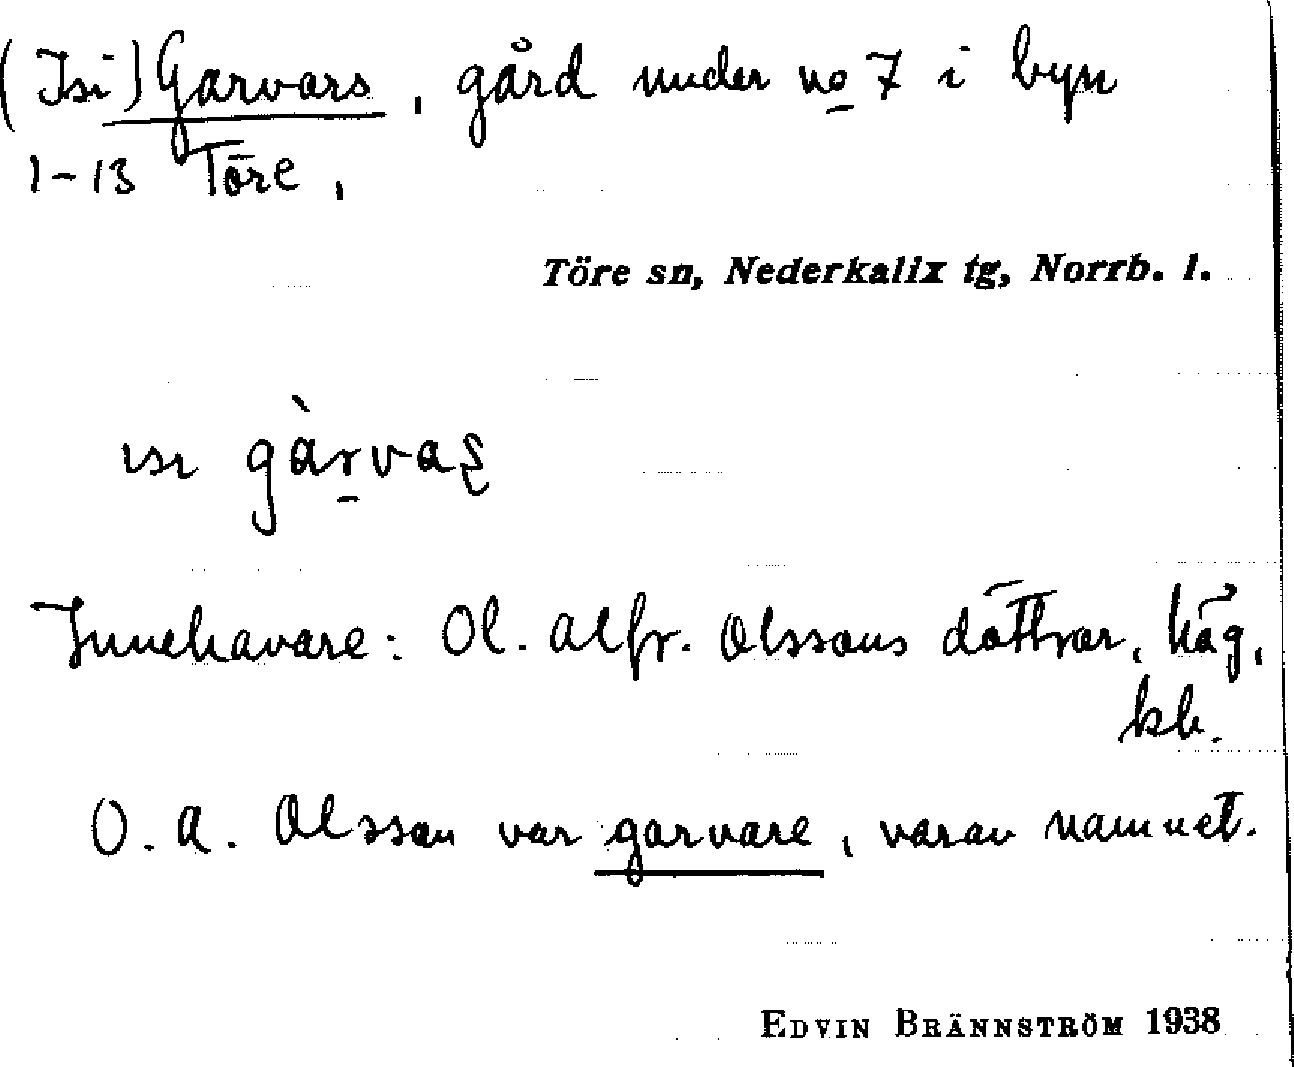 (Isi) Garvars, gård under no 7 i byn
1-13 Töre,
Töre sn, Nederkalix tg, Norrb. l.
ısı gàrvaʂ
Innehavare: Ol. Alfr. Olssons döttrar, häg,
kb.
O. A. Olsson var garvare, varav namnet.
EDVIN BRÄNNSTRÖM 1938